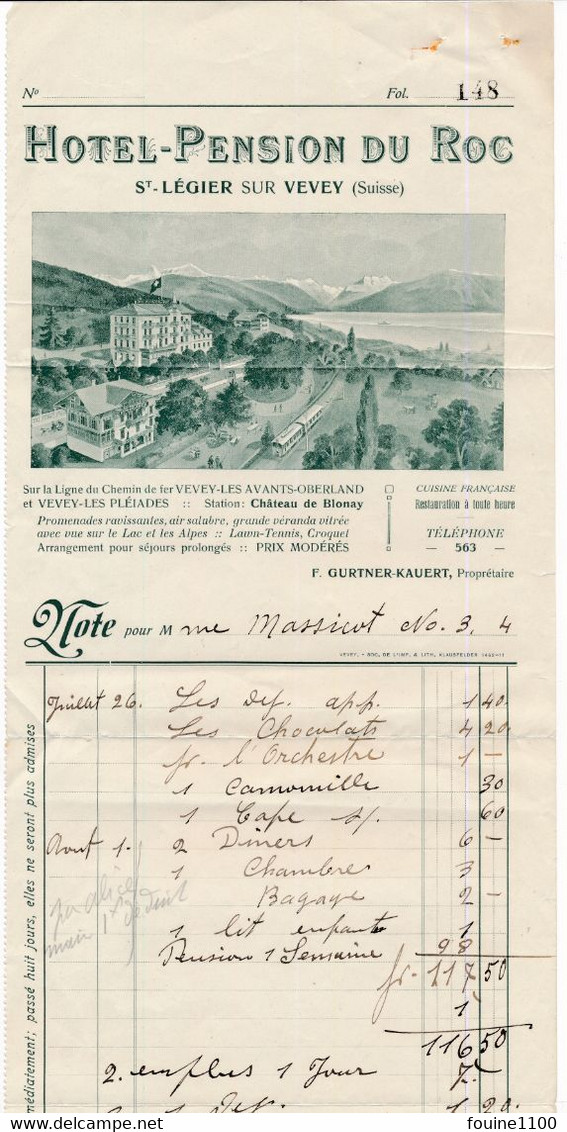 No Fol. 148
HOTEL-PENSION DU ROC
ST-LÉGIER SUR VEVEY (Suisse)
Sur la Ligne du Chemin de fer VEVEY-LES AVANTS-OBERLAND
et VEVEY-LES PLÉIADES :: Station: Château de Blonay
Promenades ravissantes, air salubre, grande véranda vitrée
avec vue sur le Lac et les Alpes :: Lawn-Tennis, Croquet
Arrangement pour séjours prolongés :: PRIX MODÉRÉS
CUISINE FRANÇAISE
Restauration à toute heure
TÉLÉPHONE
— 563 —
F. GURTNER-KAUERT, Propriétaire
Note pour Mme Massicot No. 3. 4
VEVEY. - SOC. DE L'IMP. & LITH. KLAUSFELDER
Juillet 26. Les dej. app. 1 40.
Les Chocolats 4 20.
pr. l'Orchestre 1 —
1 Camomille 30
1 Cafe 60
Aout 1. 2 Diners 6 —
1 Chambre 3
Bagage 2 —
1 lit enfant 1
Pension 1 Semaine 98
fr. 117 50
1
116 50
2. emplus 1 Jour 7. —
1 20.
médiatement; passé huit jours, elles ne seront plus admises
fouine1100